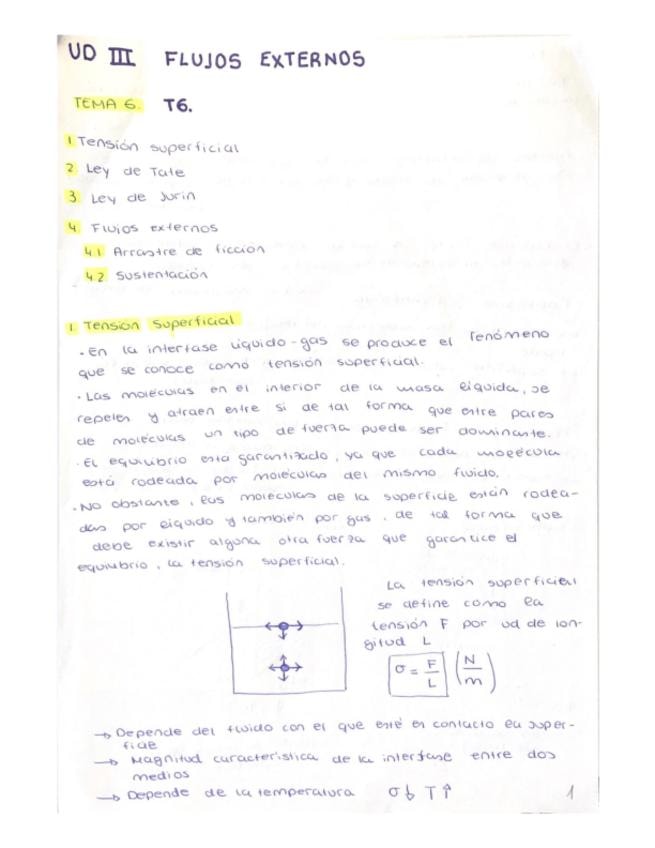 UD III FLUJOS EXTERNOS
TEMA 6. T6.
1 Tensión superficial
2 Ley de Tate
3 Ley de Jurin
4 Flujos externos
4.1 Arrastre de ficcion
4.2 Sustentación
1 Tension Superficial
· En la interfase líquido-gas se produce el fenómeno
que se conoce como tensión superficial.
· Las moléculas en el interior de la masa líquida, se
repelen y atraen entre si de tal forma que entre pares
de moléculas un tipo de fuerza puede ser dominante.
· El equilibrio esta garantizado, ya que cada molécula
está rodeada por moléculas del mismo fluido.
· No obstante, las moléculas de la superficie están rodea-
das por líquido y también por gas, de tal forma que
debe existir alguna otra fuerza que garantice el
equilibrio, la tensión superficial.
La tensión superficial
se define como la
tensión F por ud de lon-
gitud L
σ = F/L (N/m)
→ Depende del fluido con el que esté en contacto la super-
ficie
→ Magnitud caracteristica de la interfase entre dos
medios
→ Depende de la temperatura σ↓ T↑
1